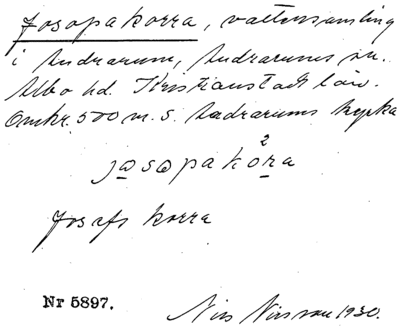 Josopakorra, vattensamling
i Andrarum, Andrarums sn.
Albo hd. Kristianstads län.
Omkr. 500 m. S. Andrarums kyrka
josopakora
2
Josefs korra
Nr 5897.
Nils Nilsson 1930.